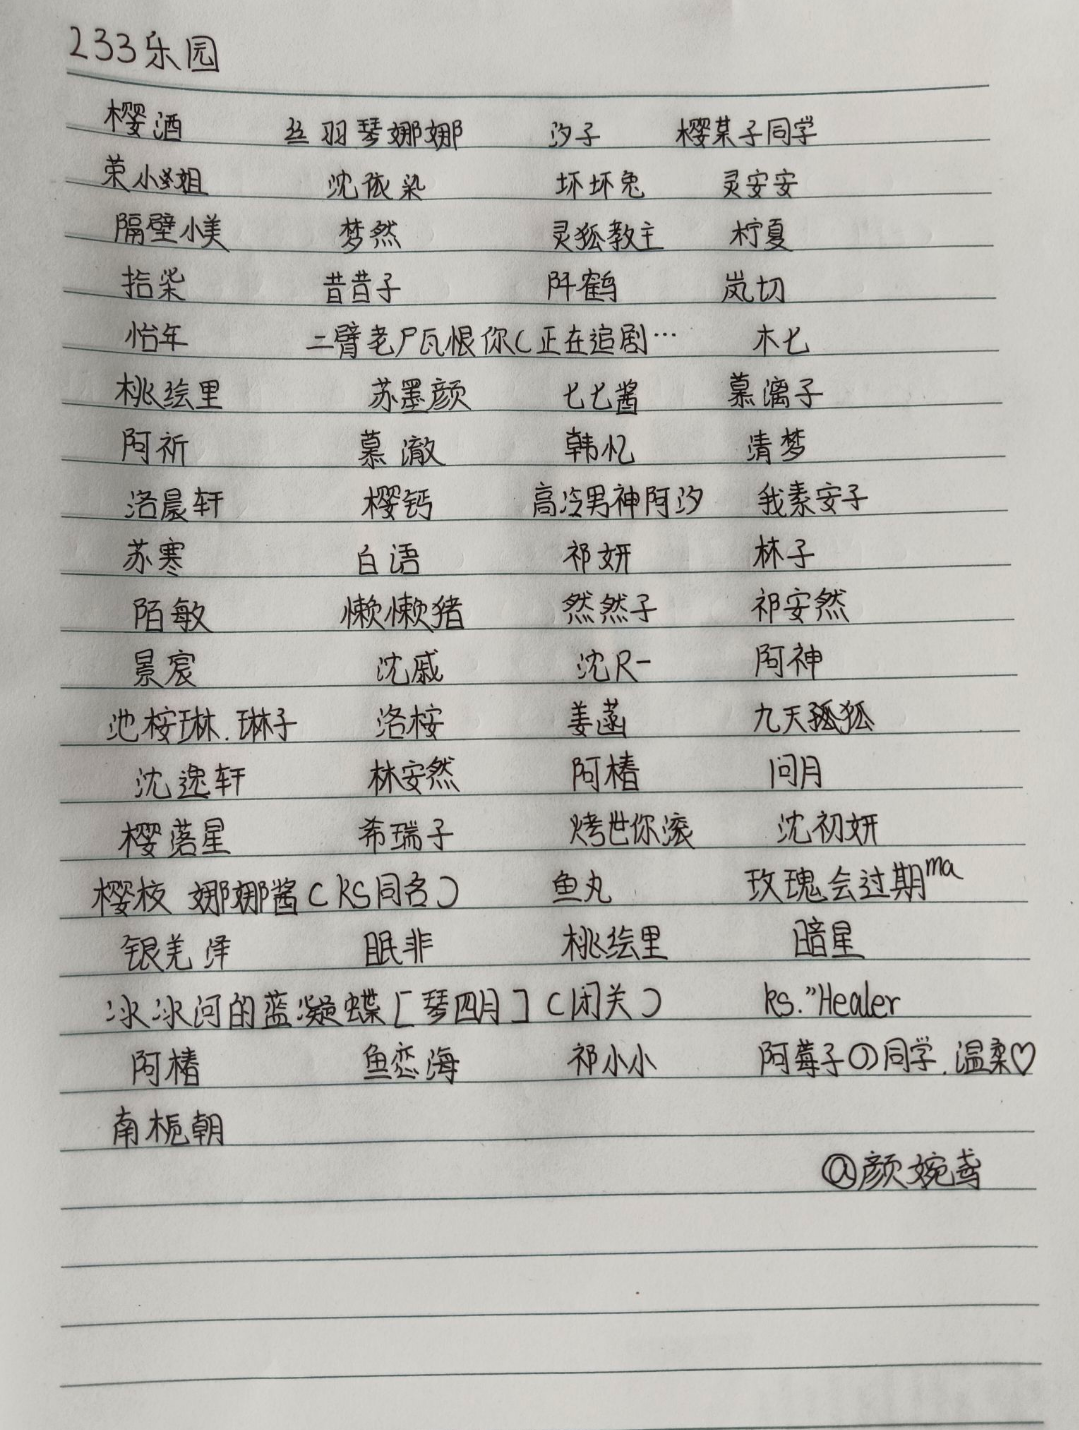 233乐园
樱酒 丝羽琴娜娜 汐子 樱某子同学
荣小姐 沈依染 坏坏兔 灵安安
隔壁小美 梦然 灵狐教主 柠夏
拾柒 昔昔子 阡鹤 岚切
怡年 二臂老尸瓦恨你(正在追剧… 木七
桃绘里 苏墨颜 七七酱 慕漓子
阿祈 慕澈 韩忆 清梦
洛晨轩 樱钙 高冷男神阿汐 我素安子
苏寒 白语 祁妍 林子
陌敏 懒懒猪 然然子 祁安然
景宸 沈戚 沈尺一 阿神
池桉琳.琳子 洛桉 姜菡 九天狐狐
沈逸轩 林安然 阿椿 问月
樱落星 希瑞子 烤世你滚 沈初妍
樱校 娜娜酱(KS同名) 鱼丸 玫瑰会过期ma
银羌泽 眠非 桃绘里 暗星
冰冰河的蓝凝蝶[琴四月](闭关) ks."Healer
阿椿 鱼恋海 祁小小 阿莓子の同学.温柔♡
南栀朝
@颜婉鸢